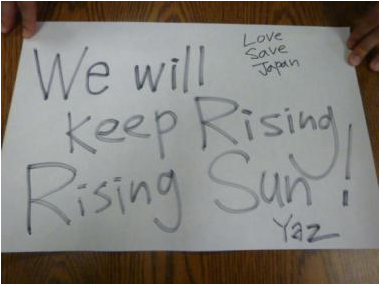 We will
Love
Save
Japan
keep Rising
Rising Sun!
Yaz